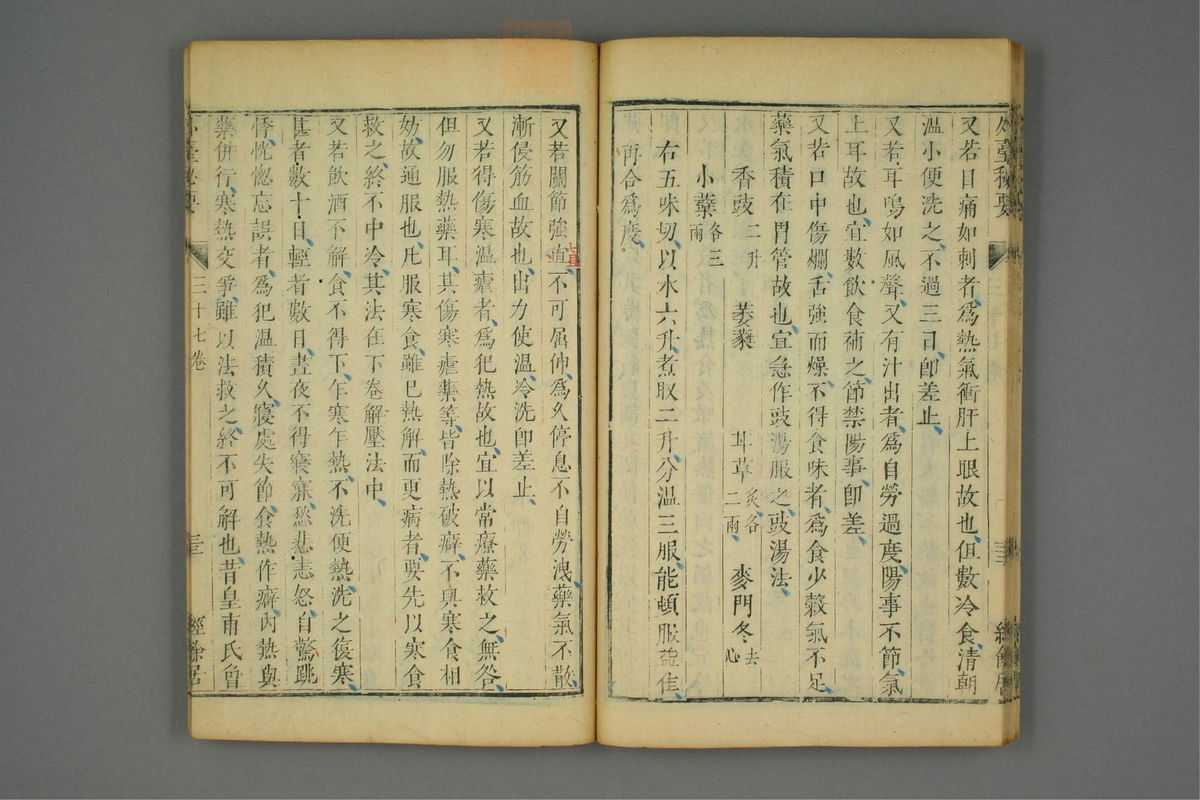 外臺秘要
又若目痛如刺者為熱氣衝肝上眼故也但數冷食清朝
溫小便洗之不過三日即差止
又若耳鳴如風聲又有汁出者為自勞過度陽事不節氣
上耳故也宜數飲食補之節禁陽事即差
又若口中傷爛舌強而燥不得食味者為食少穀氣不足
藥氣積在胃管故也宜急作豉湯服之豉湯法
香豉二升 葳蕤 甘草炙各二兩 麥門冬去心
小蘗各三兩
右五味切以水六升煮取二升分溫三服能頓服益佳
再合為度
又若關節強直不可屈伸為久停息不自勞洩藥氣不散
直
漸侵筋血故也出力使溫冷洗即差止
又若得傷寒溫瘧者為犯熱故也宜以常療藥救之無咎
但勿服熱藥耳其傷寒瘧藥等皆除熱破癖不與寒食相
妨故通服也凡服寒食雖已熱解而更病者要先以寒食
救之終不中冷其法在下卷解壓法中
又若飲酒不解食不得下乍寒乍熱不洗便熱洗之復寒
甚者數十日輕者數日晝夜不得寢寐愁悲恚怒自驚跳
悸恍惚忘誤者為犯溫積久寢處失節食熱作癖內熱與
藥併行寒熱交爭雖以法救之終不可解也昔皇甫氏曾
外臺秘要 三十七卷 經餘居